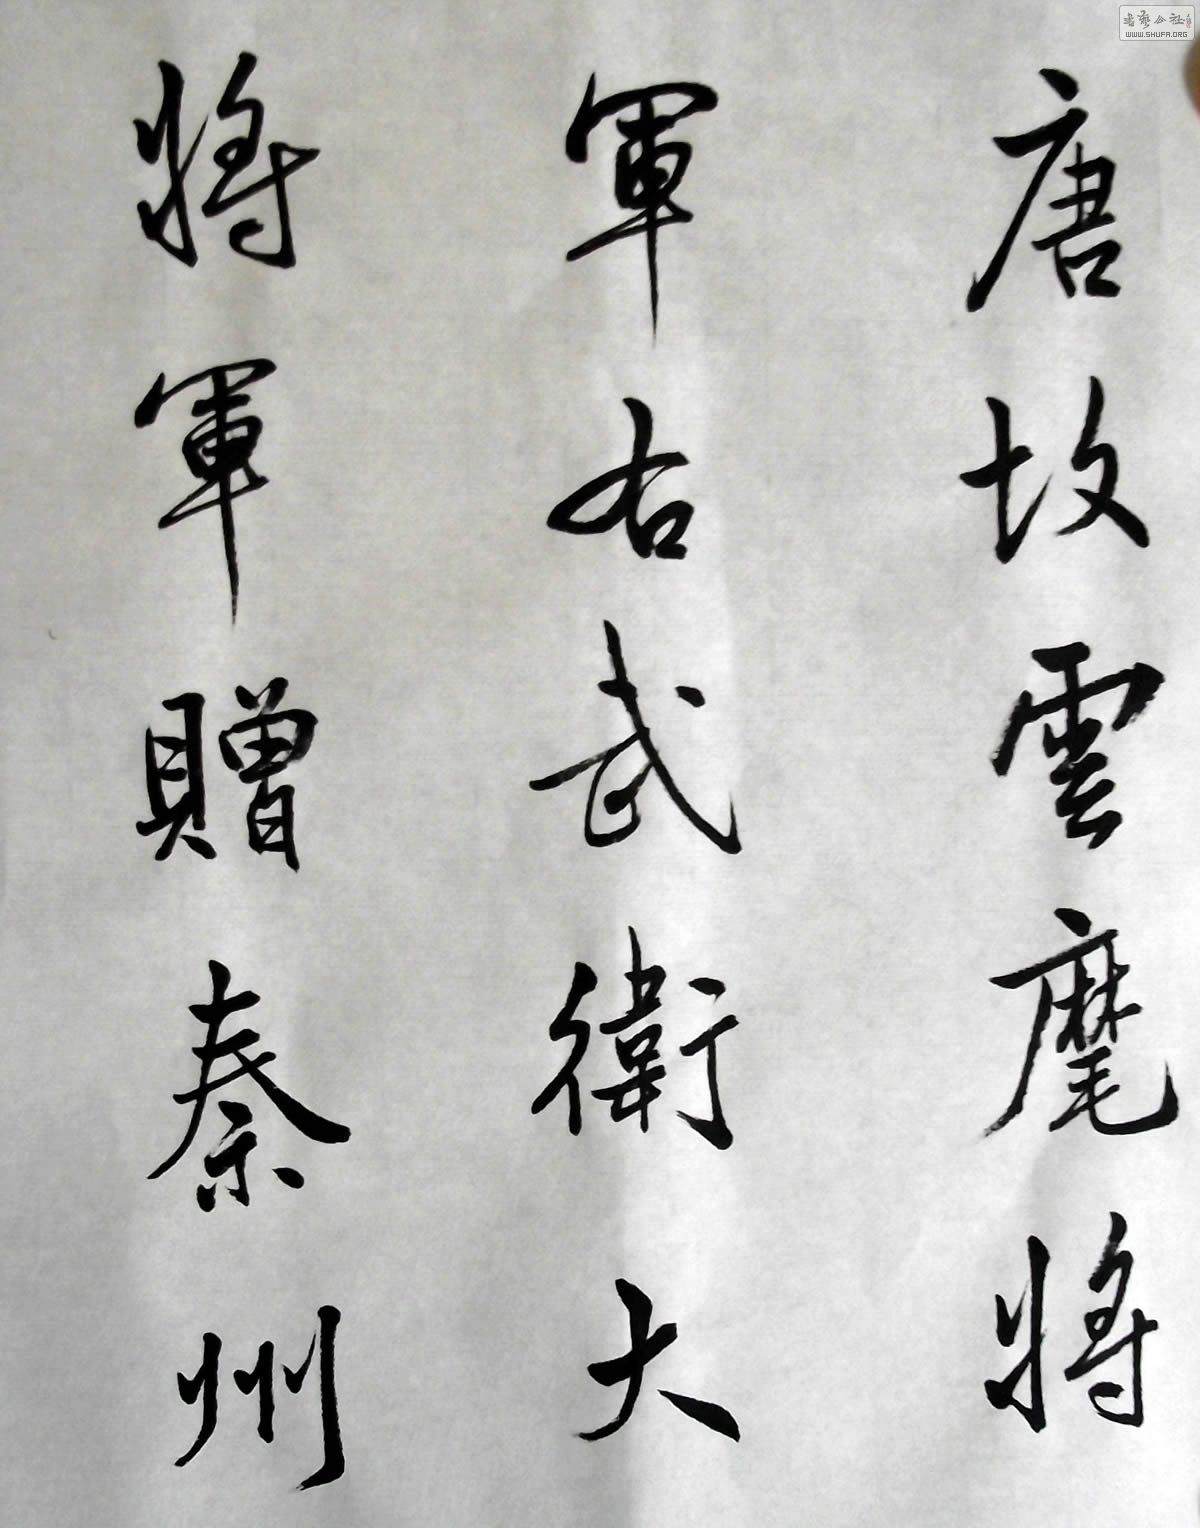 唐故雲麾將
軍右武衛大
將軍贈秦州
書藝公社
WWW.SHUFA.ORG